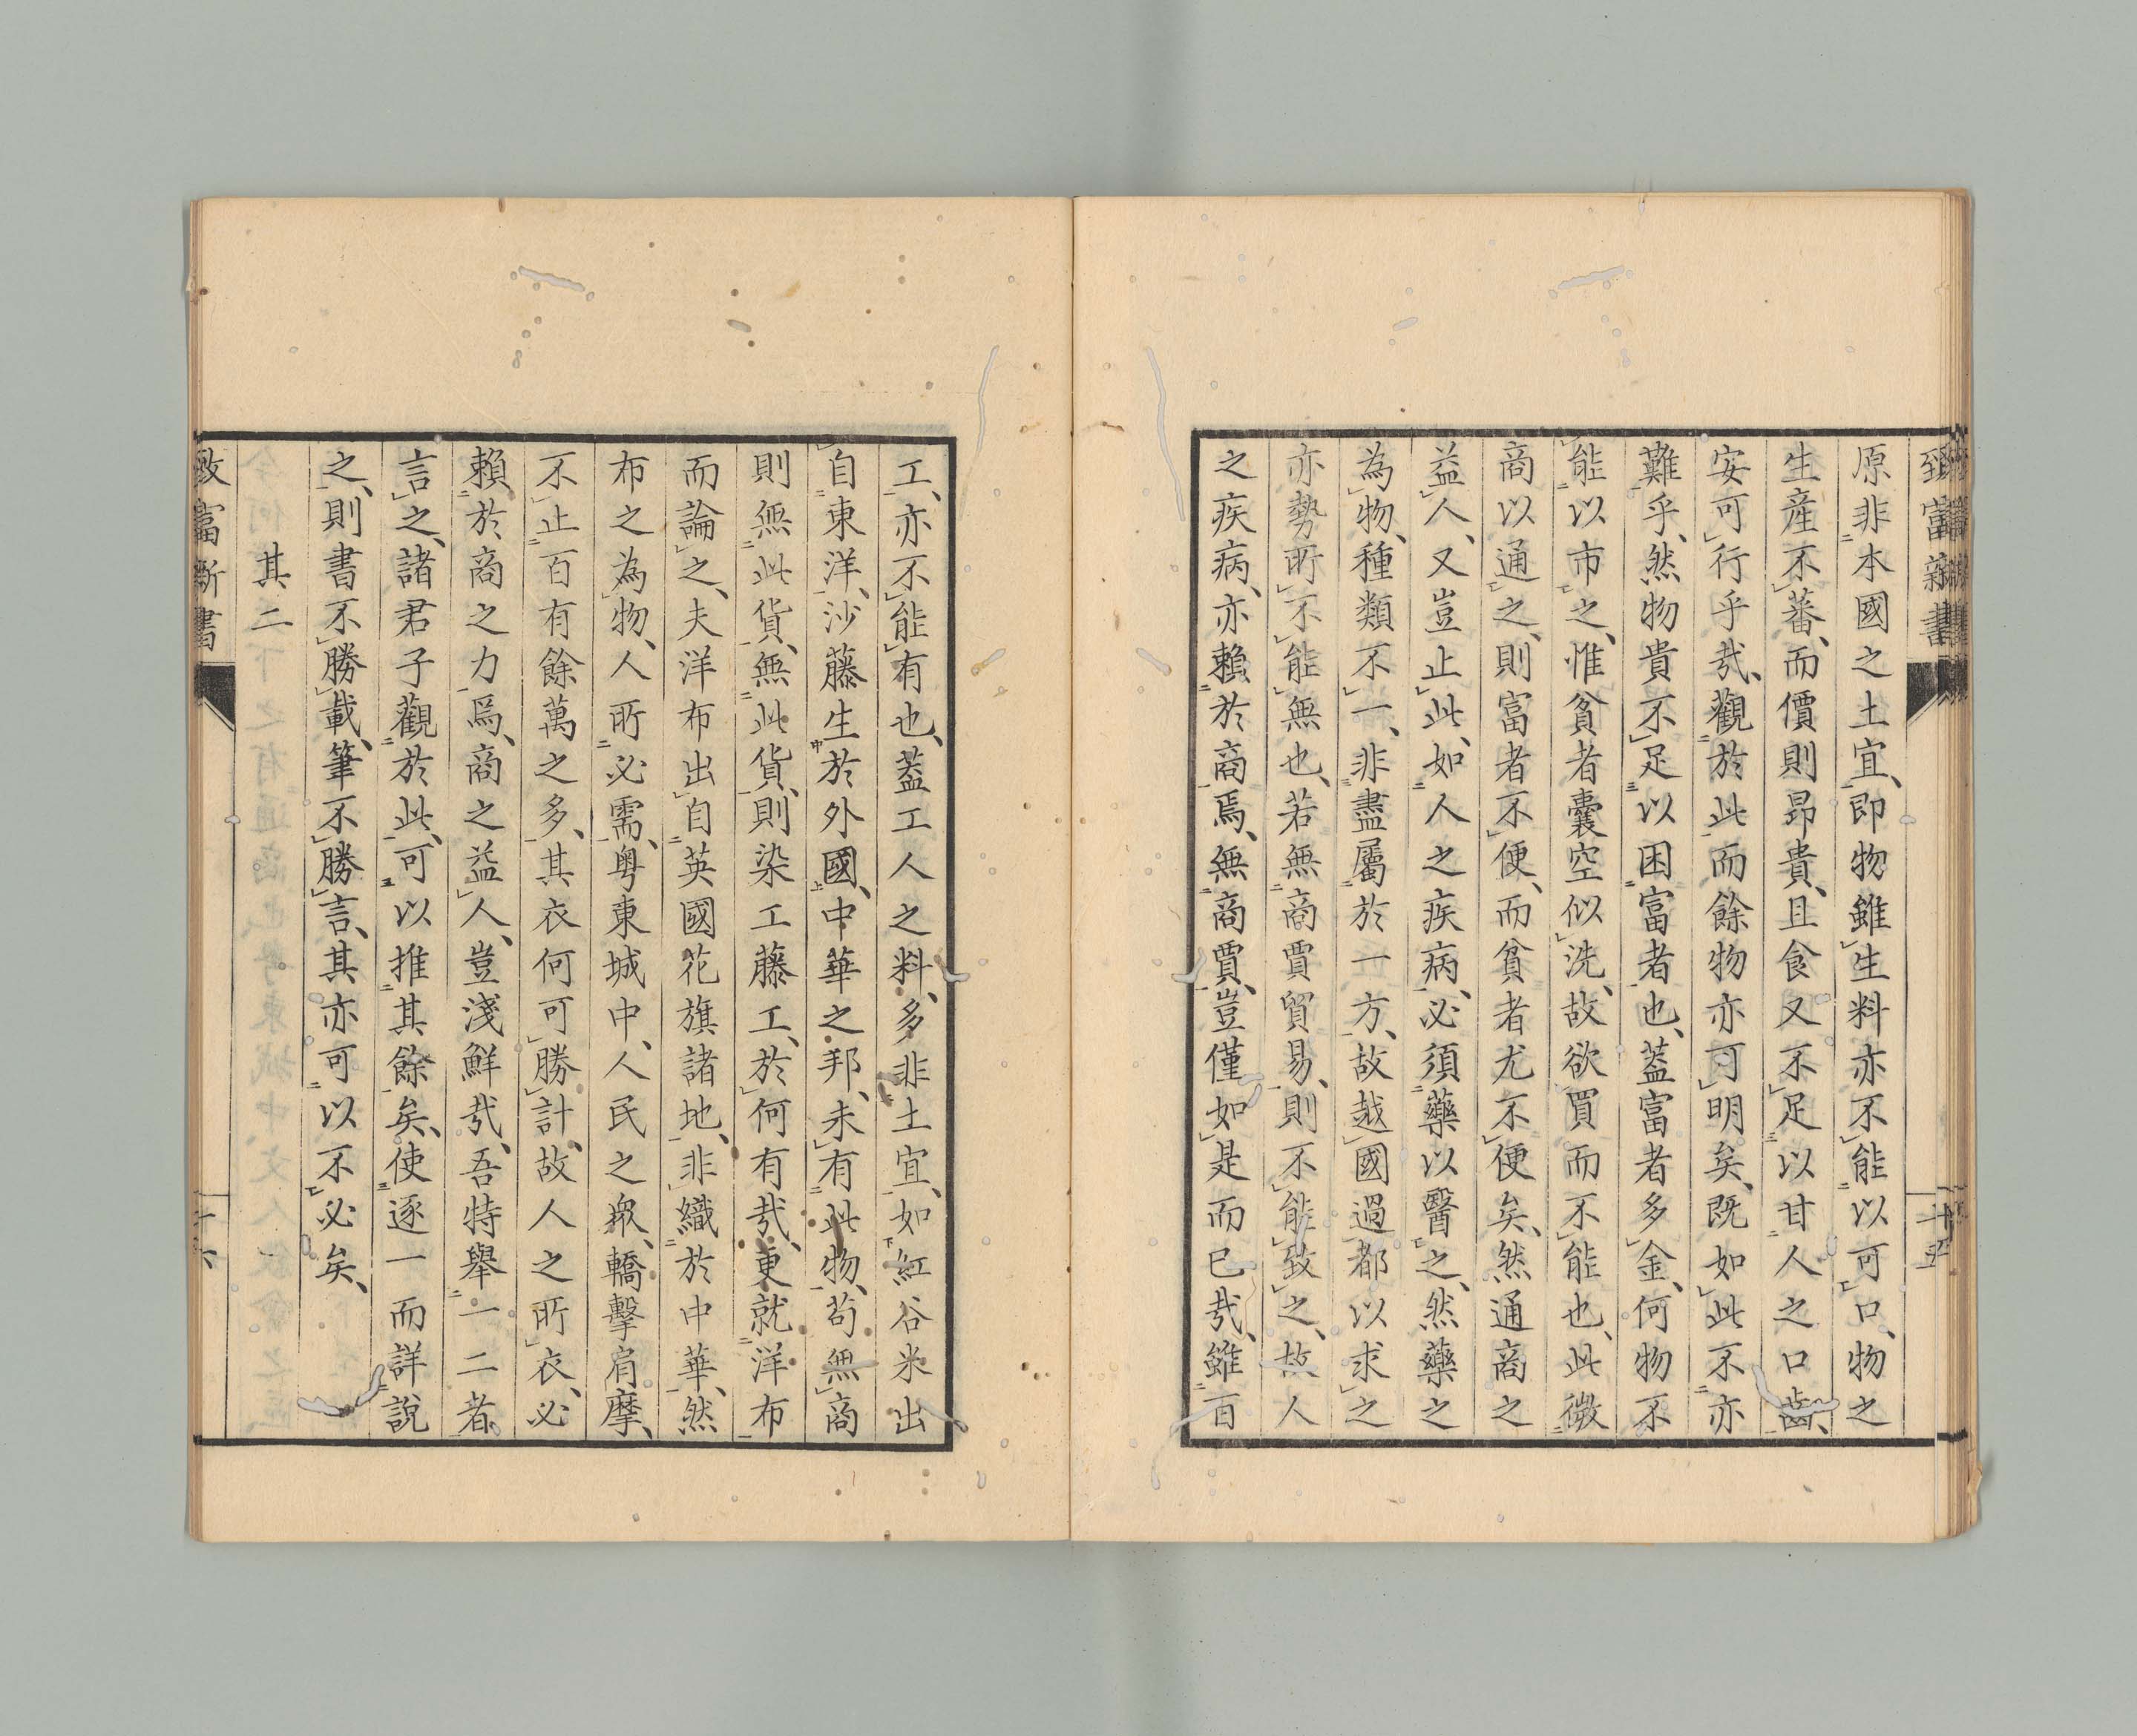 致富新書
二十五
原非本國之土宜、即物雖生料亦不能以可口、物之
生産不蕃、而價則昂貴、且食又不足以甘人之口齒、
安可行乎哉、觀於此而餘物亦可明矣、既如此不亦
難乎、然物貴不足以困富者也、蓋富者多金、何物不
能以市之、惟貧者囊空似洗、故欲買而不能也、此微
商以通之、則富者不便、而貧者尤不便矣、然通商之
益人、又豈止此、如人之疾病、必須藥以醫之、然藥之
為物、種類不一、非盡屬於一方、故越國過都以求之
亦勢所不能無也、若無商賈貿易、則不能致之、故人
之疾病、亦賴於商焉、無商賈、豈僅如是而已哉、雖百
工、亦不能有也、蓋工人之料、多非土宜、如紅谷米出
自東洋、沙藤生於外國、中華之邦、未有此物、苟無商
則無此貨、無此貨、則染工藤工、於何有哉、更就洋布
而論之、夫洋布出自英國花旗諸地、非織於中華、然
布之為物、人所必需、粤東城中、人民之衆、轎擊肩摩、
不止百有餘萬之多、其衣何可勝計、故人之所衣、必
賴於商之力焉、商之益人、豈淺鮮哉、吾特舉一二者
言之、諸君子觀於此、可以推其餘矣、使逐一而詳說
之、則書不勝載、筆不勝言、其亦可以不必矣、
其二
致富新書
二十六